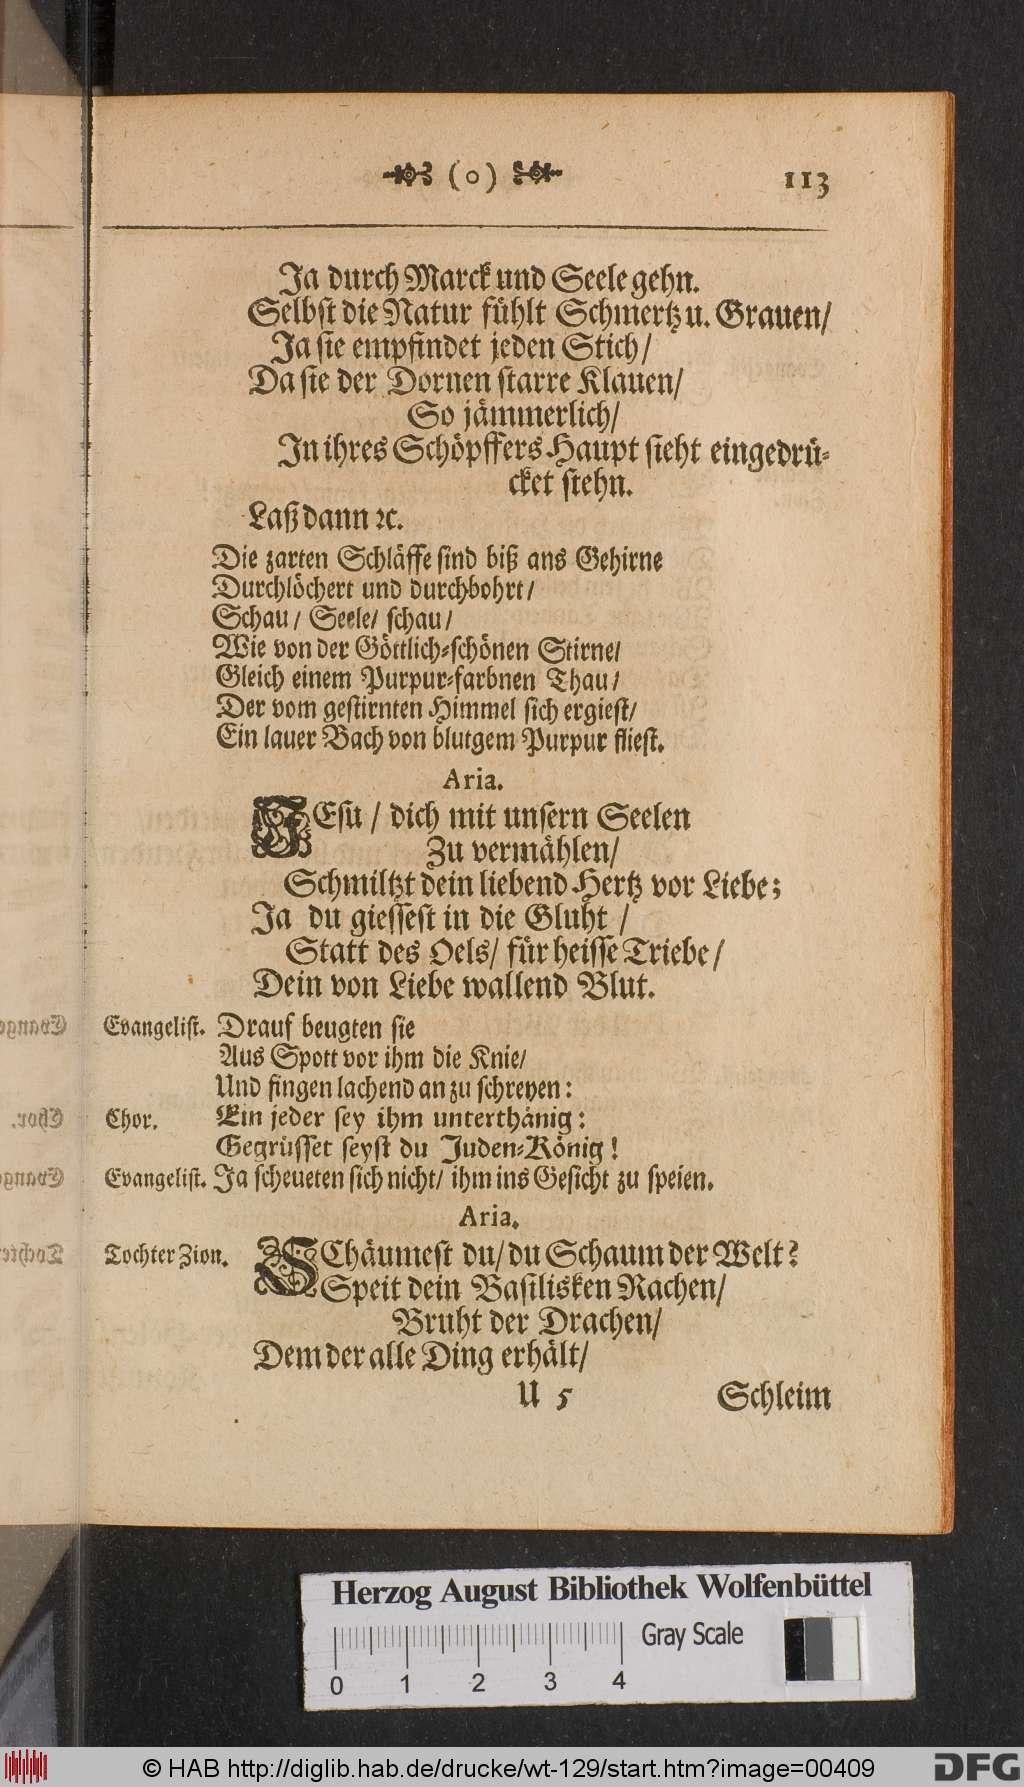 (o) 113
Ja durch Marck und Seele gehn.
Selbst die Natur fühlt Schmertz u. Grauen/
Ja sie empfindet jeden Stich/
Da sie der Dornen starre Klauen/
So jämmerlich/
In ihres Schöpffers Haupt sieht eingedrü-
cket stehn.
Laß dann ꝛc.
Die zarten Schläffe sind biß ans Gehirne
Durchlöchert und durchbohrt/
Schau/ Seele/ schau/
Wie von der Göttlich-schönen Stirne/
Gleich einem Purpur-farbnen Thau/
Der vom gestirnten Himmel sich ergiest/
Ein lauer Bach von blutgem Purpur fliest.
Aria.
JEsu / dich mit unsern Seelen
Zu vermählen/
Schmiltzt dein liebend Hertz vor Liebe;
Ja du giessest in die Gluht /
Statt des Oels/ für heisse Triebe/
Dein von Liebe wallend Blut.
Evangelist. Drauf beugten sie
Aus Spott vor ihm die Knie/
Und fingen lachend an zu schreyen:
Chor. Ein jeder sey ihm unterthänig:
Gegrüsset seyst du Juden-König!
Evangelist. Ja scheueten sich nicht/ ihm ins Gesicht zu speien.
Aria.
Tochter Zion. SChäumest du/ du Schaum der Welt?
Speit dein Basilisken Rachen/
Bruht der Drachen/
Dem der alle Ding erhält/
U 5 Schleim
Herzog August Bibliothek Wolfenbüttel
Gray Scale
0 1 2 3 4
© HAB http://diglib.hab.de/drucke/wt-129/start.htm?image=00409
DFG